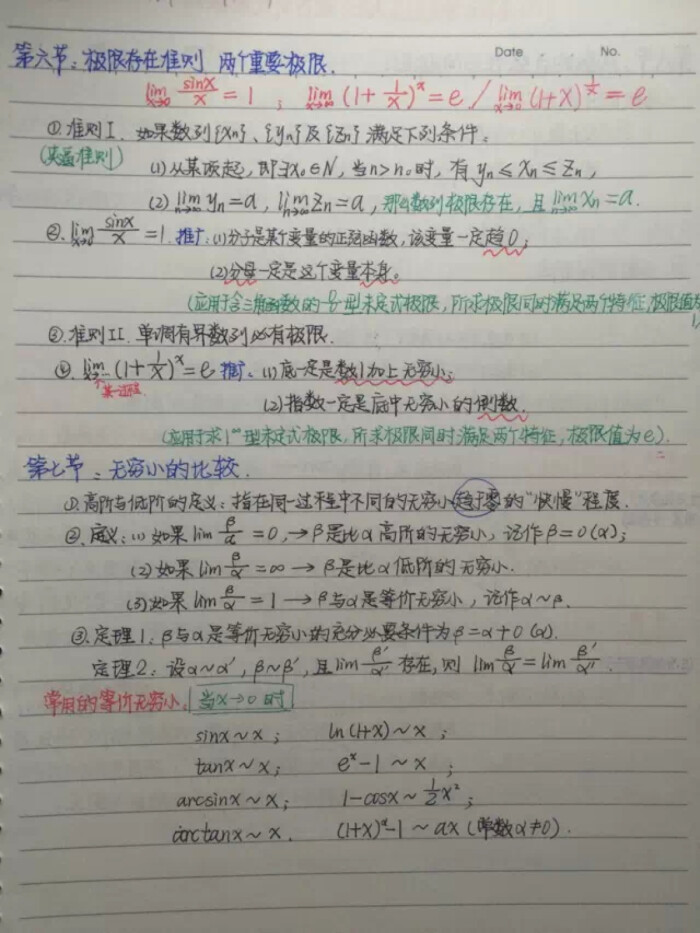 Date No.
第六节：极限存在准则 两个重要极限.
lim x→0 sinx/x = 1 ; lim x→∞ (1+1/x)^x = e / lim x→0 (1+x)^(1/x) = e
①.准则I. 如果数列{Xn}、{yn}及{Zn}满足下列条件：
(夹逼准则) (1)从某项起，即∃x₀∈N，当n>n₀时，有 yn≤Xn≤Zn，
(2) lim n→∞ yn=a, lim n→∞ Zn=a, 那么数列极限存在，且 lim n→∞ Xn=a.
②. lim x→0 sinx/x = 1. 推广：(1)分子是某个变量的正弦函数，该变量一定趋0；
(2)分母一定是这个变量本身。
(应用于含三角函数的 0/0 型未定式极限，所求极限同时满足两个特征，极限值为
③.准则II. 单调有界数列必有极限.
④. lim (1+1/x)^x = e 推广：(1)底一定是数1加上无穷小；
某一过程
(2)指数一定是底中无穷小的倒数.
(应用于求1^∞型未定式极限，所求极限同时满足两个特征，极限值为e).
第七节：无穷小的比较.
①.高阶与低阶的定义：指在同一过程中不同的无穷小趋于零的“快慢”程度.
②.定义：(1)如果lim β/α = 0，→β是比α高阶的无穷小，记作β=0(α)；
(2)如果lim β/α = ∞ → β是比α低阶的无穷小.
(3)如果lim β/α = 1 → β与α是等价无穷小，记作α~β.
③.定理1：β与α是等价无穷小的充分必要条件为β=α+0(α).
定理2：设α~α′，β~β′，且lim β′/α′ 存在，则 lim β/α = lim β′/α′.
常用的等价无穷小： 当x→0时
sinx~x； ln(1+x)~x；
tanx~x； e^x-1~x；
arcsinx~x； 1-cosx~1/2x²；
arctanx~x. (1+x)^α-1~αx (常数α≠0).